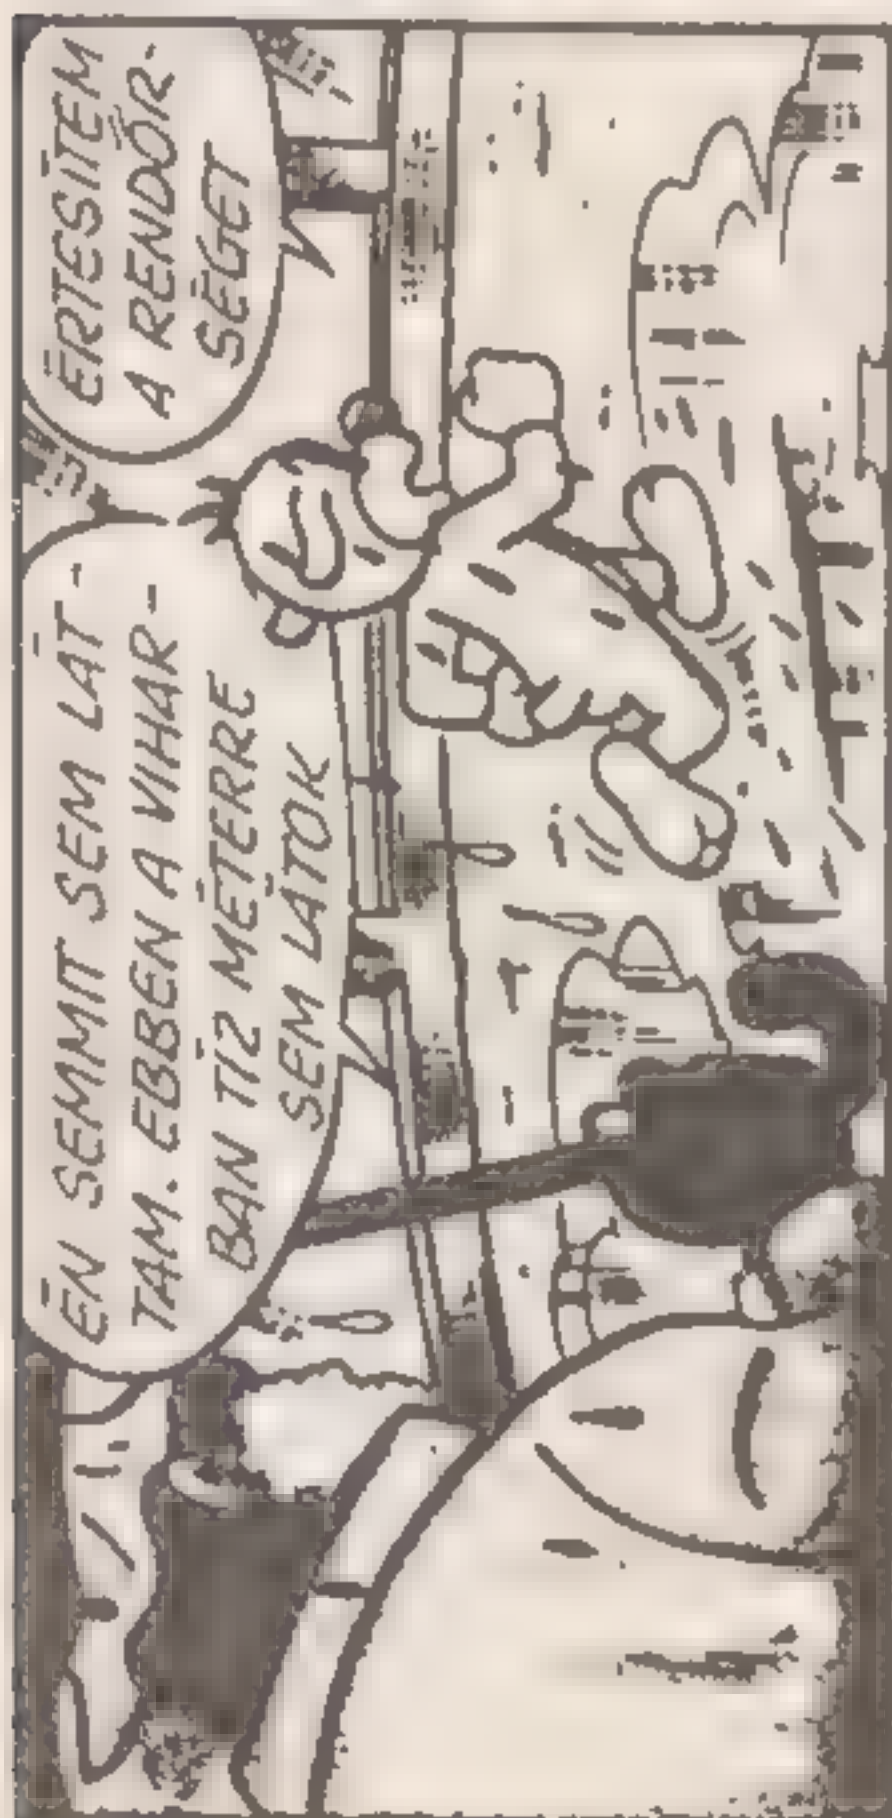 ÉN SEMMIT SEM LÁT-
TAM. EBBEN A VIHAR-
BAN TÍZ MÉTERRE
SEM LÁTOK
ÉRTESÍTEM
A RENDŐR-
SÉGET